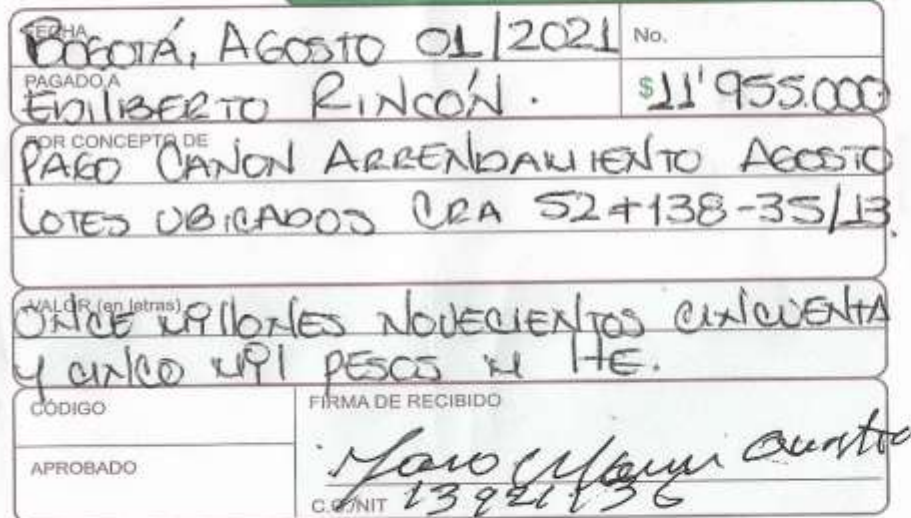 FECHA
BOGOTÁ, AGOSTO 01/2021
No.
PAGADO A
EDILIBERTO RINCÓN.
$11'955.000
POR CONCEPTO DE
PAGO CANON ARRENDAMIENTO AGOSTO
LOTES UBICADOS CRA 52 # 138-35/13.
VALOR (en letras)
ONCE MILLONES NOVECIENTOS CINCUENTA
Y CINCO MIL PESOS M TE.
CÓDIGO
FIRMA DE RECIBIDO
APROBADO
C.C./NIT 13921136